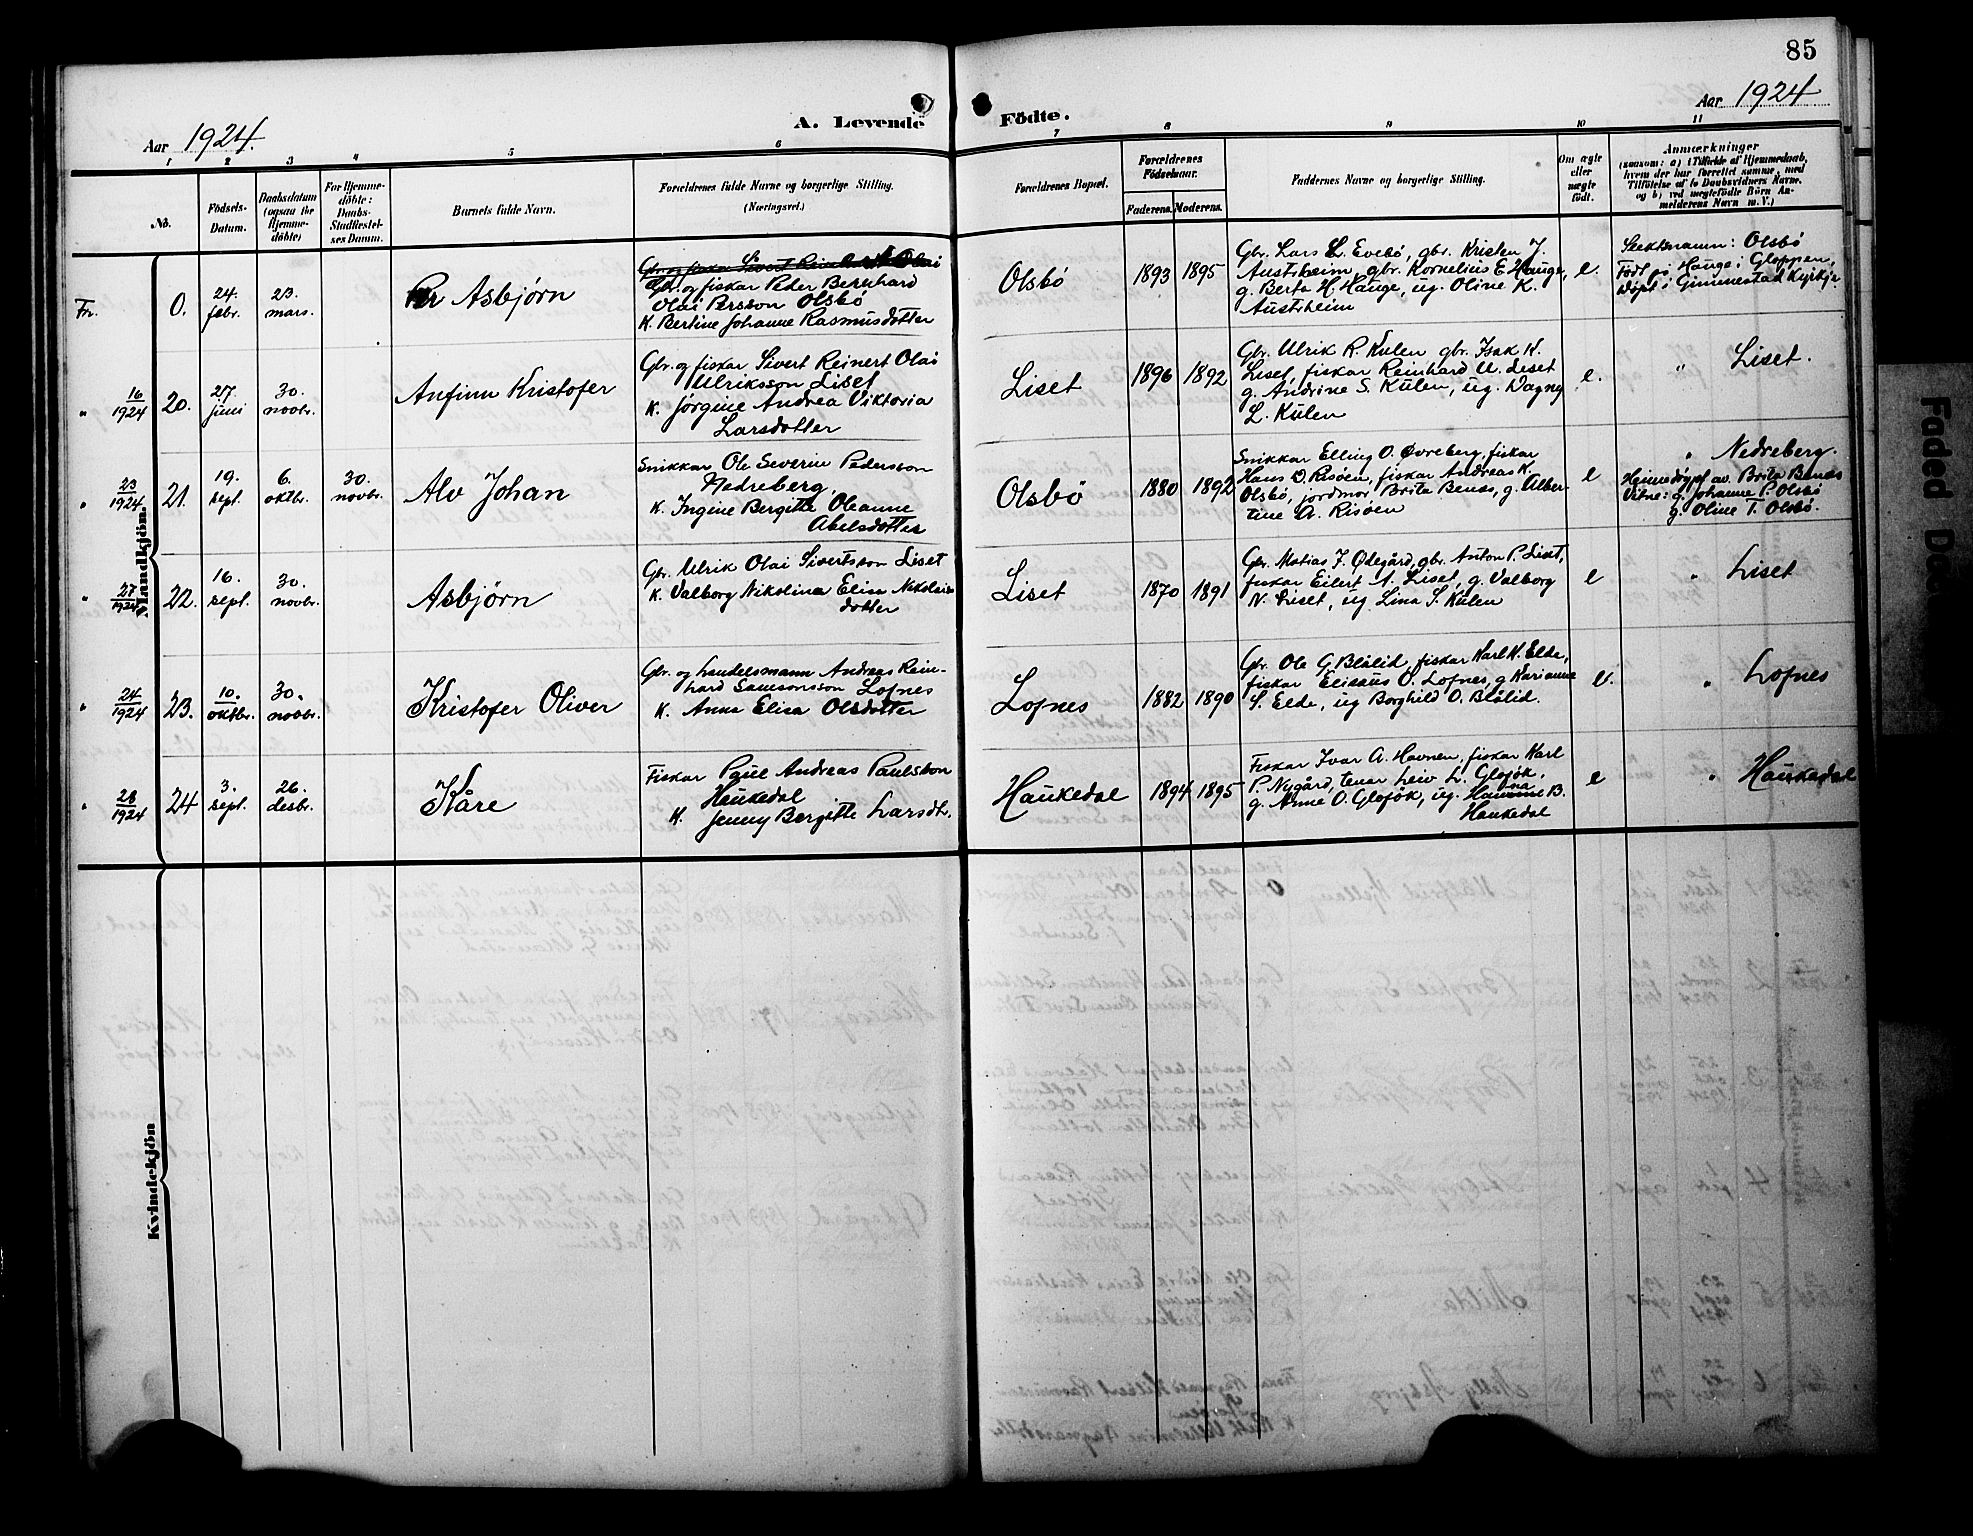 85
Aar 1924.
A. Levende Fødte.
Aar 1924
1 2 3 4 5 6 7 8 9 10 11
No.
Fødsels-Datum.
Daabsdatum (ogsaa for Hjemme-døbte)
For Hjemme-døbte: Daabs-Stadfæstel-ses Datum.
Barnets fulde Navn.
Forældrenes fulde Navne og borgerlige Stilling. (Næringsvei.)
Forældrenes Bopæl.
Forældrenes Fødselsaar.
Faderens. Moderens.
Faddernes Navne og borgerlige Stilling.
Om ægte eller uægte født.
Anmærkninger
(saasom: a) i Tilfælde af Hjemmedaab,
hvem der har forrettet samme, med
Tilføielse af to Daabsvidners Navne,
og b) ved uægtefødte Børn An-
melderens Navn m. V.)
Mandkjøn.
Fr. 0.
24. febr.
23. mars.
Per Asbjørn
Gbr. og fiskar Sivert Reinert Olai
Gbr. og fiskar Peder Bernhard
Olai Persson Olsbø
K. Bertine Johanne Rasmusdotter
Olsbø
1893 1895
Gbr. Lars L. Evebø, gbr. Kristen J.
Austrheim, gbr. Kornelius E. Hauge,
g. Berta H. Hauge, ug. Oline K.
Austrheim
e.
Slektsnamn: Olsbø
Født på Hauge i Gloppen,
døpt i Gimmestad Kyrkje
" 16/1924 20.
27. juni
30. novbr.
Anfinn Kristofer
Gbr. og fiskar Sivert Reinert Olai
Ulriksson Liset
K. Jørgine Andrea Viktoria
Larsdotter
Liset
1896 1892
Gbr. Ulrik R. Kulen, gbr. Isak K.
Liset, fiskar Reinhard U. Liset
g. Andrine S. Kulen, ug. Dagny
L. Kulen
e.
" Liset.
" 23/1924 21.
19. sept.
6. oktbr.
30. novbr.
Alv Johan
Snikkar Ole Severin Pedersson
Nedreberg
K. Ingine Bergitte Oleanne
Abelsdotter
Olsbø
1880 1892
Snikkar Elling O. Øvreberg, fiskar
Hans D. Risøen, fiskar Andreas K.
Olsbø, jordmor Brita Benes, g. Alber-
tine A. Risøen
e
" Nedreberg.
Heimedøypt av Brita Benes
Vitne: g. Johanne P. Olsbø
g. Oline T. Olsbø.
" 27/1924 22.
16. sept.
30. novbr.
Asbjørn
Gbr. Ulrik Olai Sivertsson Liset
K. Valborg Nikolina Elisa Nikolais
dotter
Liset
1870 1891
Gbr. Matias J. Ødegård, gbr. Anton P. Liset,
fiskar Eilert A. Liset, g. Valborg
N. Liset, ug Lina S. Kulen
e
" Liset
" 24/1924 23.
10. oktbr.
30. novbr.
Kristofer Oliver
Gbr. og handelsmann Andreas Rein-
hard Samsonsson Lofnes
K. Anna Elisa Olsdotter
Lofnes
1882 1890
Gbr. Ole G. Blålid, fiskar Karl K. Elde,
fiskar Elisæus O. Lofnes, g Karianne
S. Elde, ug Borghild O. Blålid.
e.
" Lofnes
" 28/1924 24
3. sept.
26. desbr.
Kåre
Fiskar Paul Andreas Paulsson
Haukedal
K. Jenny Bergitte Larsdt.
Haukedal
1894 1895
Fiskar Ivar A. Havnen, fiskar Karl
P. Nygård, tenar Leiv L.
g. Anne O. ug. B.
Haukedal
e
" Haukedal
Kvindekjøn
Faded